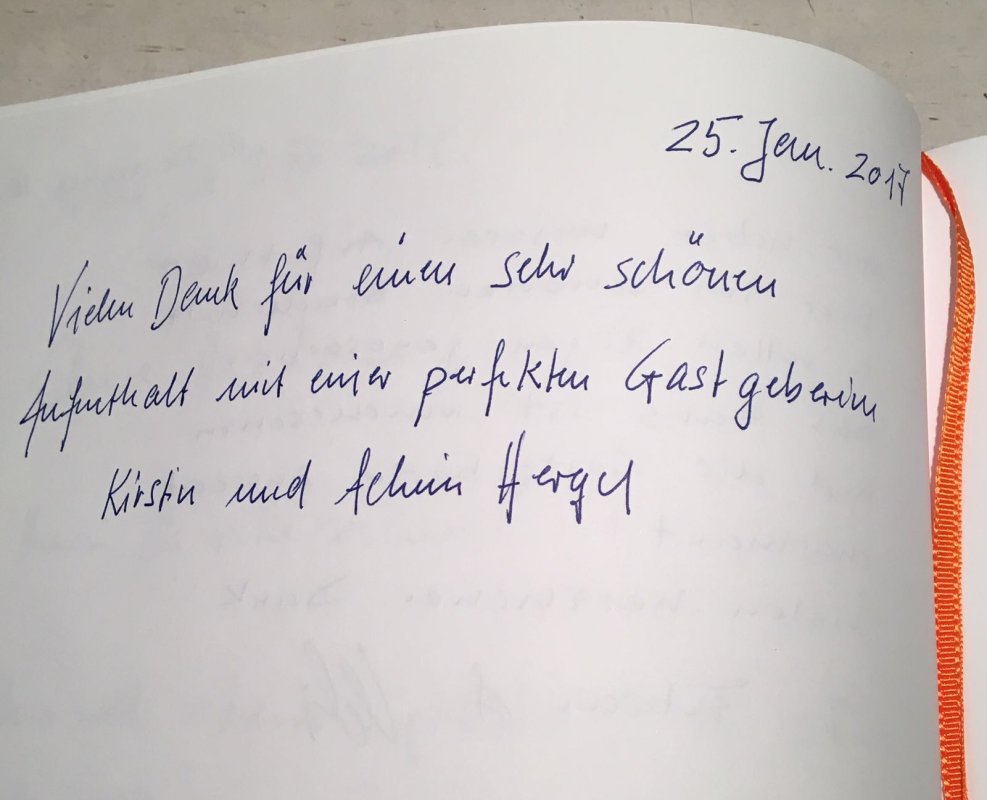 25. Jan. 2017
Vielen Dank für einen sehr schönen
Aufenthalt mit einer perfekten Gastgeberin
Kirstin und Achim Hergel